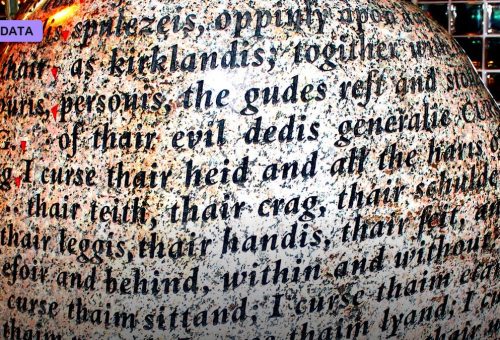 DATA
spulezeis, oppinly upon
thair as kirklandis; together
personis, the gudes reft and
of thair evil dedis generalie
I curse thair heid and all the haris
thair teith, thair crag, thair schulde
thair leggis, thair handis, thair feit,
efoir and behind, within and without
curse thaim sittand; I curse thaim
thaim lyand; I